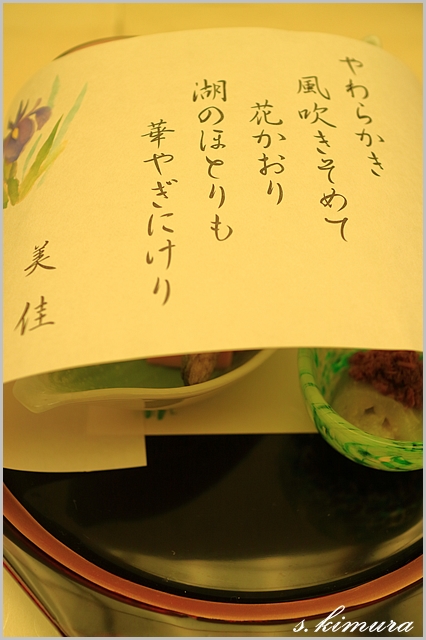 やわらかき
風吹きそめて
花かおり
湖のほとりも
華やぎにけり
美佳
s.kimura